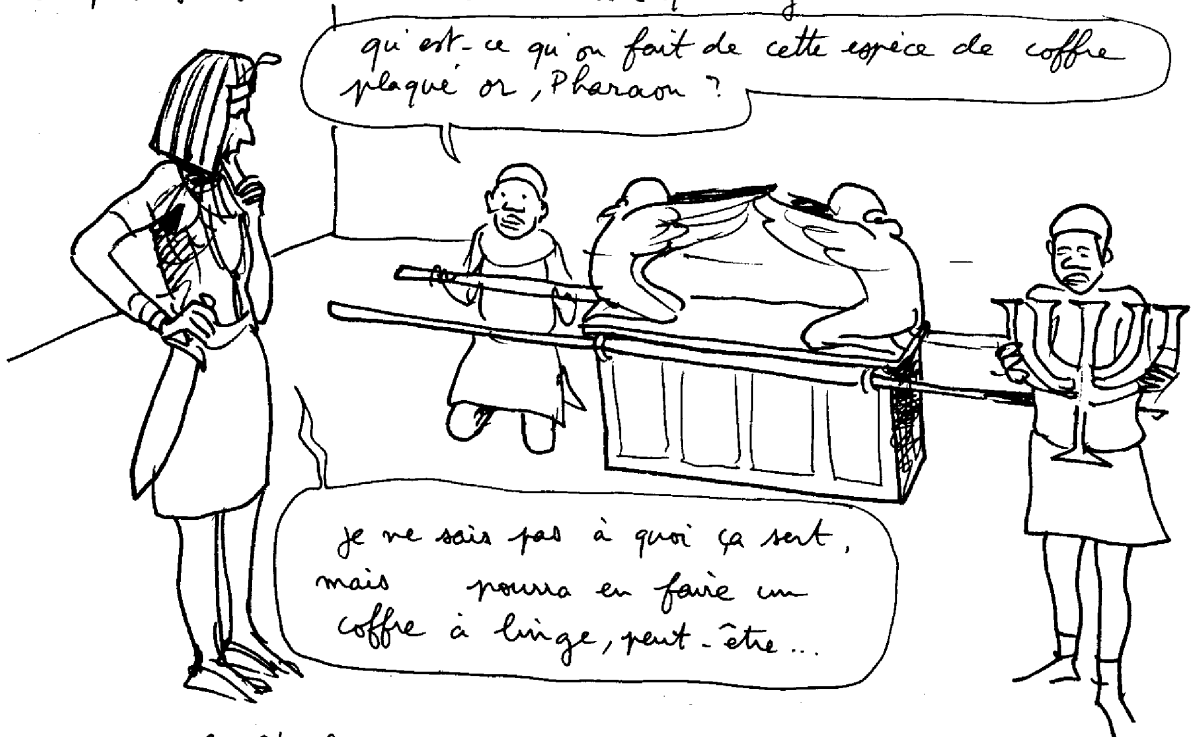 qu'est-ce qu'on fait de cette espèce de coffre
plaqué or, Pharaon ?
je ne sais pas à quoi ça sert,
mais pourra en faire un
coffre à linge, peut-être...